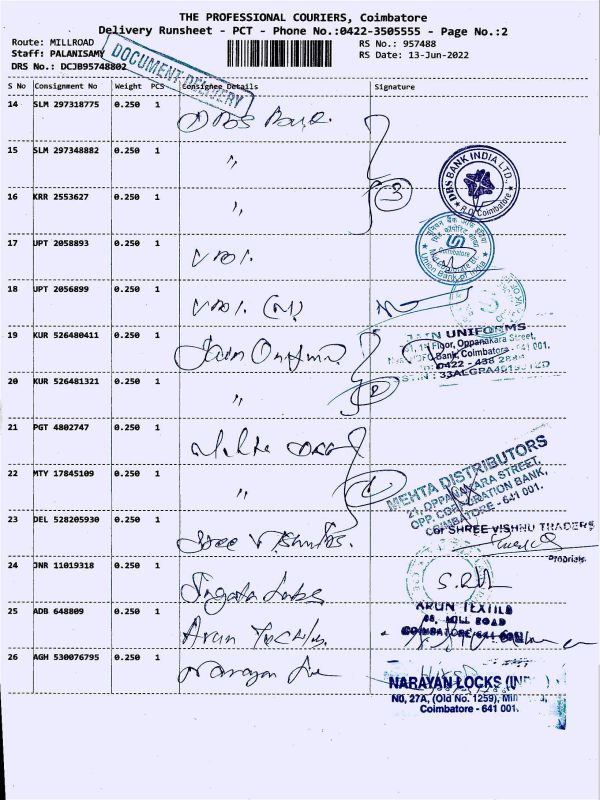 THE PROFESSIONAL COURIERS, Coimbatore
Delivery Runsheet - PCT - Phone No.:0422-3505555 - Page No.:2
Route: MILLROAD
Staff: PALANISAMY
DRS No.: DCJB95748802
RS No.: 957488
RS Date: 13-Jun-2022
DOCUMENT DELIVERY
S No Consignment No Weight PCS Consignee Details Signature
14 SLM 297318775 0.250 1 DBS Bank
15 SLM 297348882 0.250 1 "
16 KRR 2553627 0.250 1 "
3
DBS BANK INDIA LTD., Coimbatore
17 UPT 2058893 0.250 1 UBI.
Coimbatore
Union Bank of India
18 UPT 2056899 0.250 1 UBI. (M)
19 KUR 526480411 0.250 1 Jain Uniforms
JAIN UNIFORMS
Floor, Oppanakara Street,
Bank, Coimbatore - 641 001.
20 KUR 526481321 0.250 1 "
2
21 PGT 4802747 0.250 1
22 MTY 17845109 0.250 1 "
1
MEHTA DISTRIBUTORS
21, OPPANAKARA STREET,
OPP. CORPORATION BANK,
COIMBATORE - 641 001.
23 DEL 528205930 0.250 1 Sree Vishnu
For SHREE VISHNU TRADERS
24 JNR 11019318 0.250 1
25 ADB 648809 0.250 1 Arun Textiles
ARUN TEXTILE
MILL ROAD
COIMBATORE-641 001
26 AGH 530076795 0.250 1 Narayan
NARAYAN LOCKS
No, 27A, (Old No. 1259), Mill
Coimbatore - 641 001.